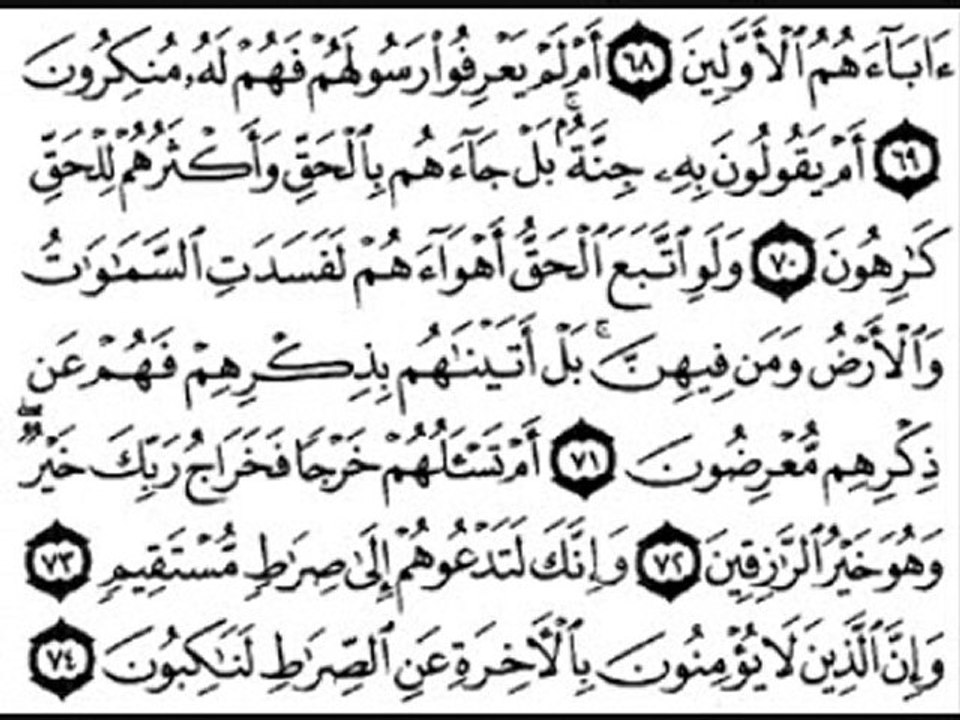 ءَابَآءَهُمُ ٱلْأَوَّلِينَ ٦٨ أَمْ لَمْ يَعْرِفُوا۟ رَسُولَهُمْ فَهُمْ لَهُۥ مُنكِرُونَ
٦٩ أَمْ يَقُولُونَ بِهِۦ جِنَّةٌۢ ۚ بَلْ جَآءَهُم بِٱلْحَقِّ وَأَكْثَرُهُمْ لِلْحَقِّ
كَٰرِهُونَ ٧٠ وَلَوِ ٱتَّبَعَ ٱلْحَقُّ أَهْوَآءَهُمْ لَفَسَدَتِ ٱلسَّمَٰوَٰتُ
وَٱلْأَرْضُ وَمَن فِيهِنَّ ۚ بَلْ أَتَيْنَٰهُم بِذِكْرِهِمْ فَهُمْ عَن
ذِكْرِهِم مُّعْرِضُونَ ٧١ أَمْ تَسْـَٔلُهُمْ خَرْجًا فَخَرَاجُ رَبِّكَ خَيْرٌ ۖ
وَهُوَ خَيْرُ ٱلرَّٰزِقِينَ ٧٢ وَإِنَّكَ لَتَدْعُوهُمْ إِلَىٰ صِرَٰطٍ مُّسْتَقِيمٍ ٧٣
وَإِنَّ ٱلَّذِينَ لَا يُؤْمِنُونَ بِٱلْأَخِرَةِ عَنِ ٱلصِّرَٰطِ لَنَٰكِبُونَ ٧٤